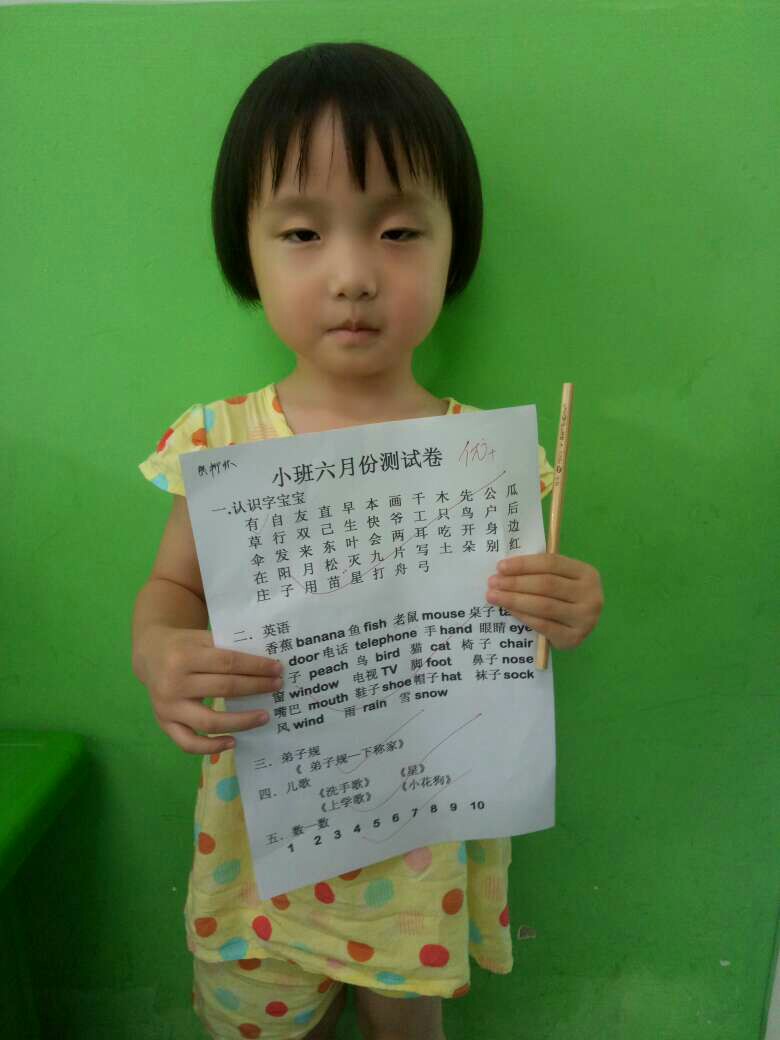 小班六月份测试卷 优+
一.认识字宝宝
有 自 友 直 早 本 画 千 木 先 公 瓜
草 行 双 己 生 快 爷 工 只 鸟 户 后
伞 发 来 东 叶 会 两 耳 吃 开 身 边
在 阳 月 松 灭 九 片 写 土 朵 别 红
庄 子 用 苗 星 打 舟 弓
二. 英语
香蕉 banana 鱼 fish 老鼠 mouse 桌子
door 电话 telephone 手 hand 眼睛 eye
子 peach 鸟 bird 猫 cat 椅子 chair
窗 window 电视 TV 脚 foot 鼻子 nose
嘴巴 mouth 鞋子 shoe 帽子 hat 袜子 sock
风 wind 雨 rain 雪 snow
三. 弟子规
《 弟子规—下称家》
四. 儿歌
《洗手歌》 《星》
《上学歌》 《小花狗》
五. 数一数
1 2 3 4 5 6 7 8 9 10